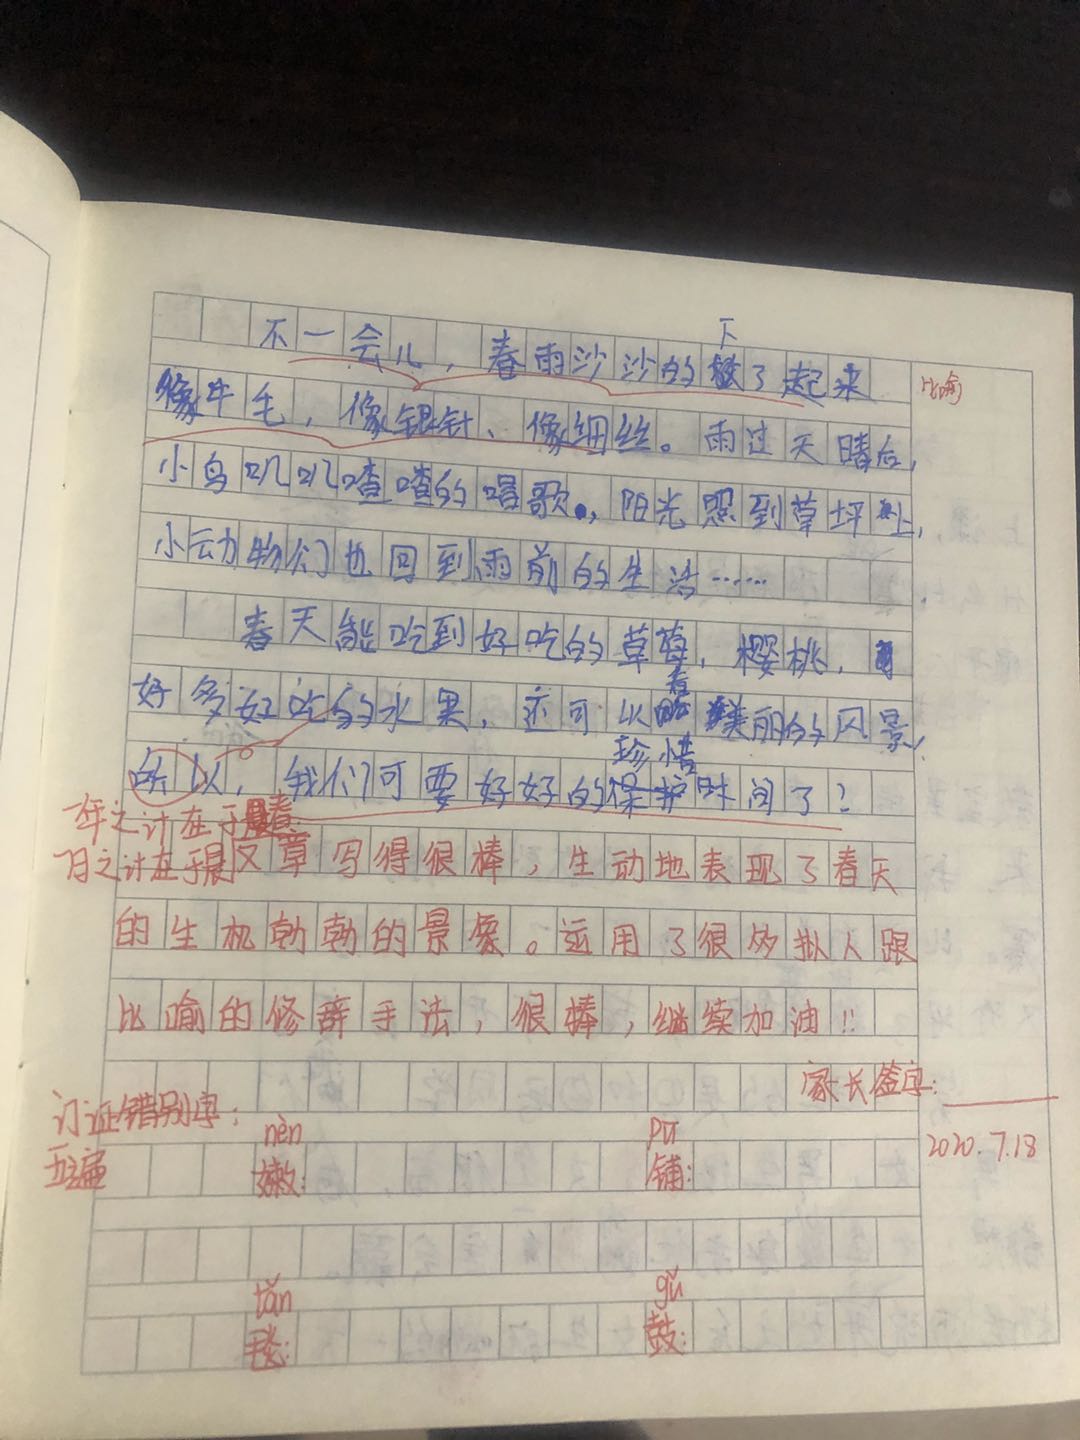 不一会儿，春雨沙沙的下了起来
像牛毛，像银针、像细丝。雨过天晴后，
小鸟叽叽喳喳的唱歌。，阳光照到草坪上，
小动物们也回到雨前的生活……
春天能吃到好吃的草莓，樱桃，
好多好吃的水果，还可以看美丽的风景！
所以，我们可要好好的珍惜时间了？
比喻
一年之计在于春
一日之计在于晨
文章写得很棒，生动地表现了春天
的生机勃勃的景象。运用了很多拟人跟
比喻的修辞手法，很棒，继续加油！！
家长签字：
2020.7.18
订证错别字：
五遍
nèn
嫩：
pū
铺：
tǎn
毯：
gǔ
鼓：